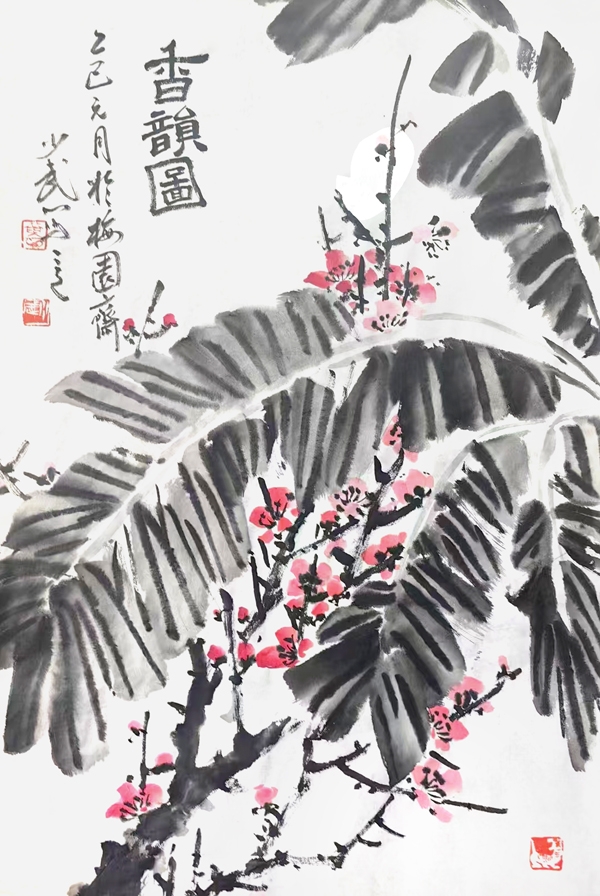 香韻圖
乙巳元月於梅園齋
少武